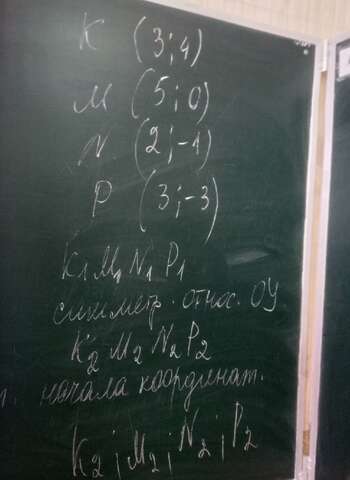 K (3;4)
M (5;0)
N (2;-1)
P (3;-3)
K₁M₁N₁P₁
симметр. относ. ОУ
K₂M₂N₂P₂
начала координат.
K₂; M₂; N₂; P₂